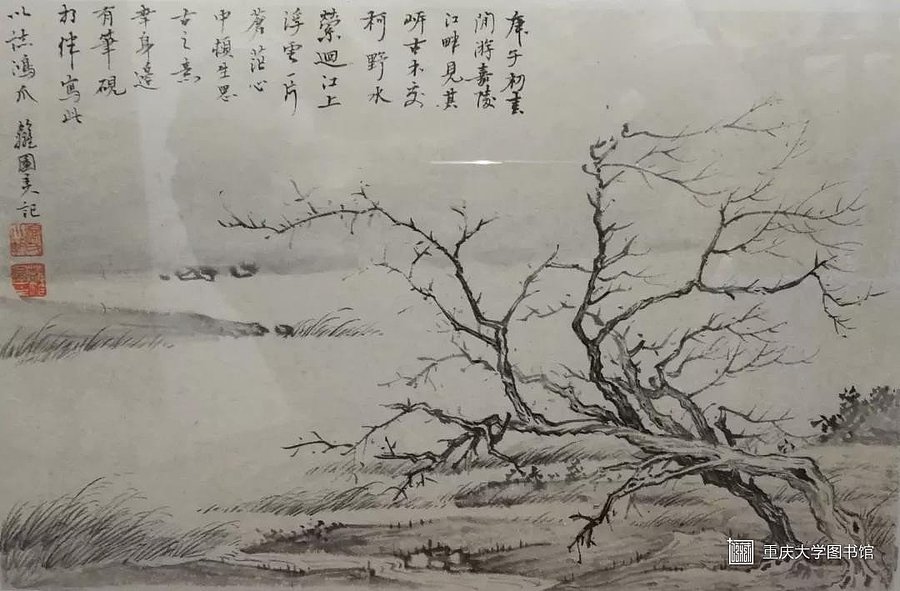 庚子初春
閒游嘉陵
江畔見其
岸古木交
柯野水
縈迴江上
浮雲一片
蒼茫心
中頓生思
古之意
幸身邊
有筆硯
相伴寫此
以誌鴻爪
蘿園美記
重庆大学图书馆